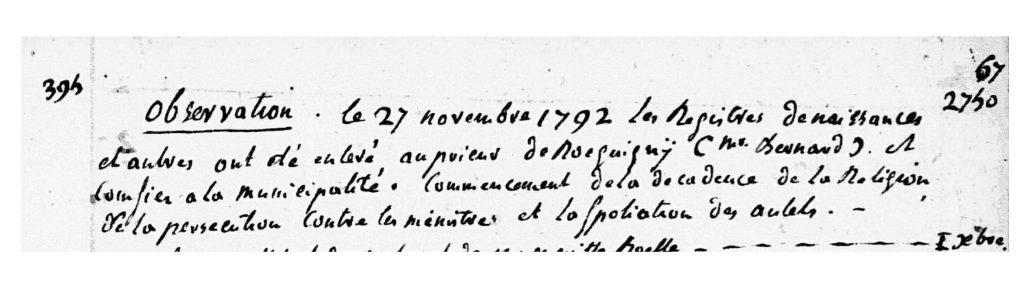 67
395 2750
Observation . le 27 novembre 1792 les Registres de naissances
et autres ont eté enlevé au prieur de Roeguigny (Mr. Bernard). et
confier a la municipalité. Commencement de la decadence de la Religion
de la persecution contre les ministres et la spoliation des autels. -
Xbre